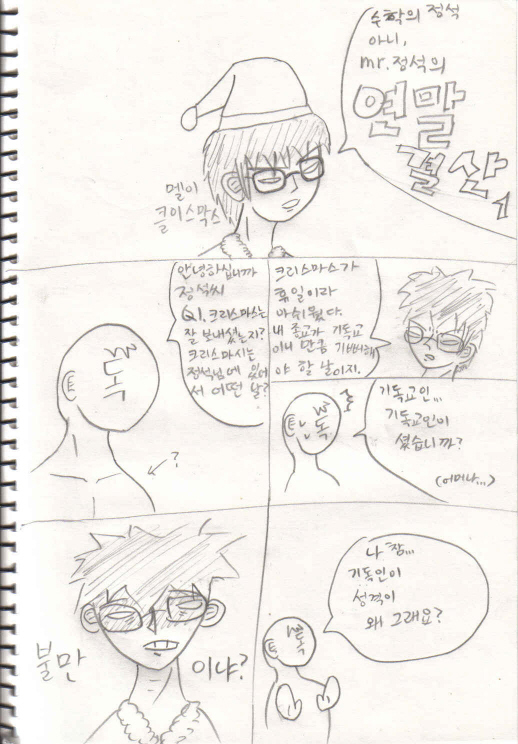 수학의 정석
아니,
mr.정석의
연말
결산
1
멜이
클이스막스
안녕하십니까
정석씨
Q1. 크리스마스는
잘 보내셨는지?
크리스마시는
정석님에 있어
서 어떤 날?
크리스마스가
휴일이라
아쉬웠다.
내 종교가 기독교
이니 만큼 기뻐해
야 할 날이지.
?
기독교인...
기독교인이
셨습니까?
(어머나...)
불만
이냐?
나 참...
기독인이
성격이
왜 그래요?